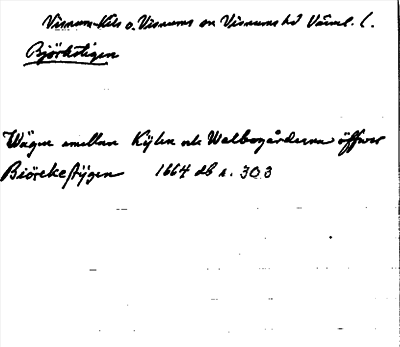 Visnum-Kils o. Visnums sn Visnums hd Värml. l.
Björkstigen
Wägen emellan Kijlen och Walbogårderna öffwer
Biörckestijgen 1664 db s. 303